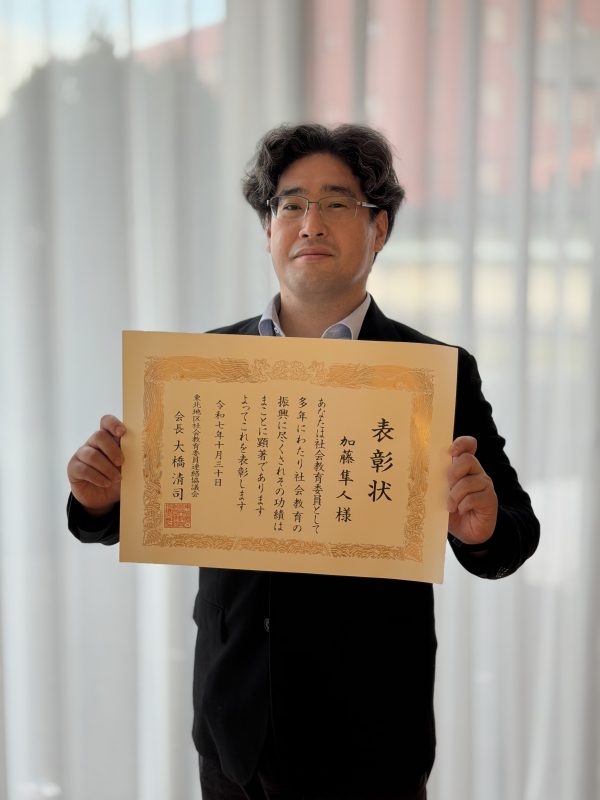 表彰状
加藤隼人様
あなたは社会教育委員として
多年にわたり社会教育の
振興に尽くされその功績は
まことに顕著であります
よってこれを表彰します
令和七年十月三十日
東北地区社会教育委員連絡協議会
会長 大橋清司